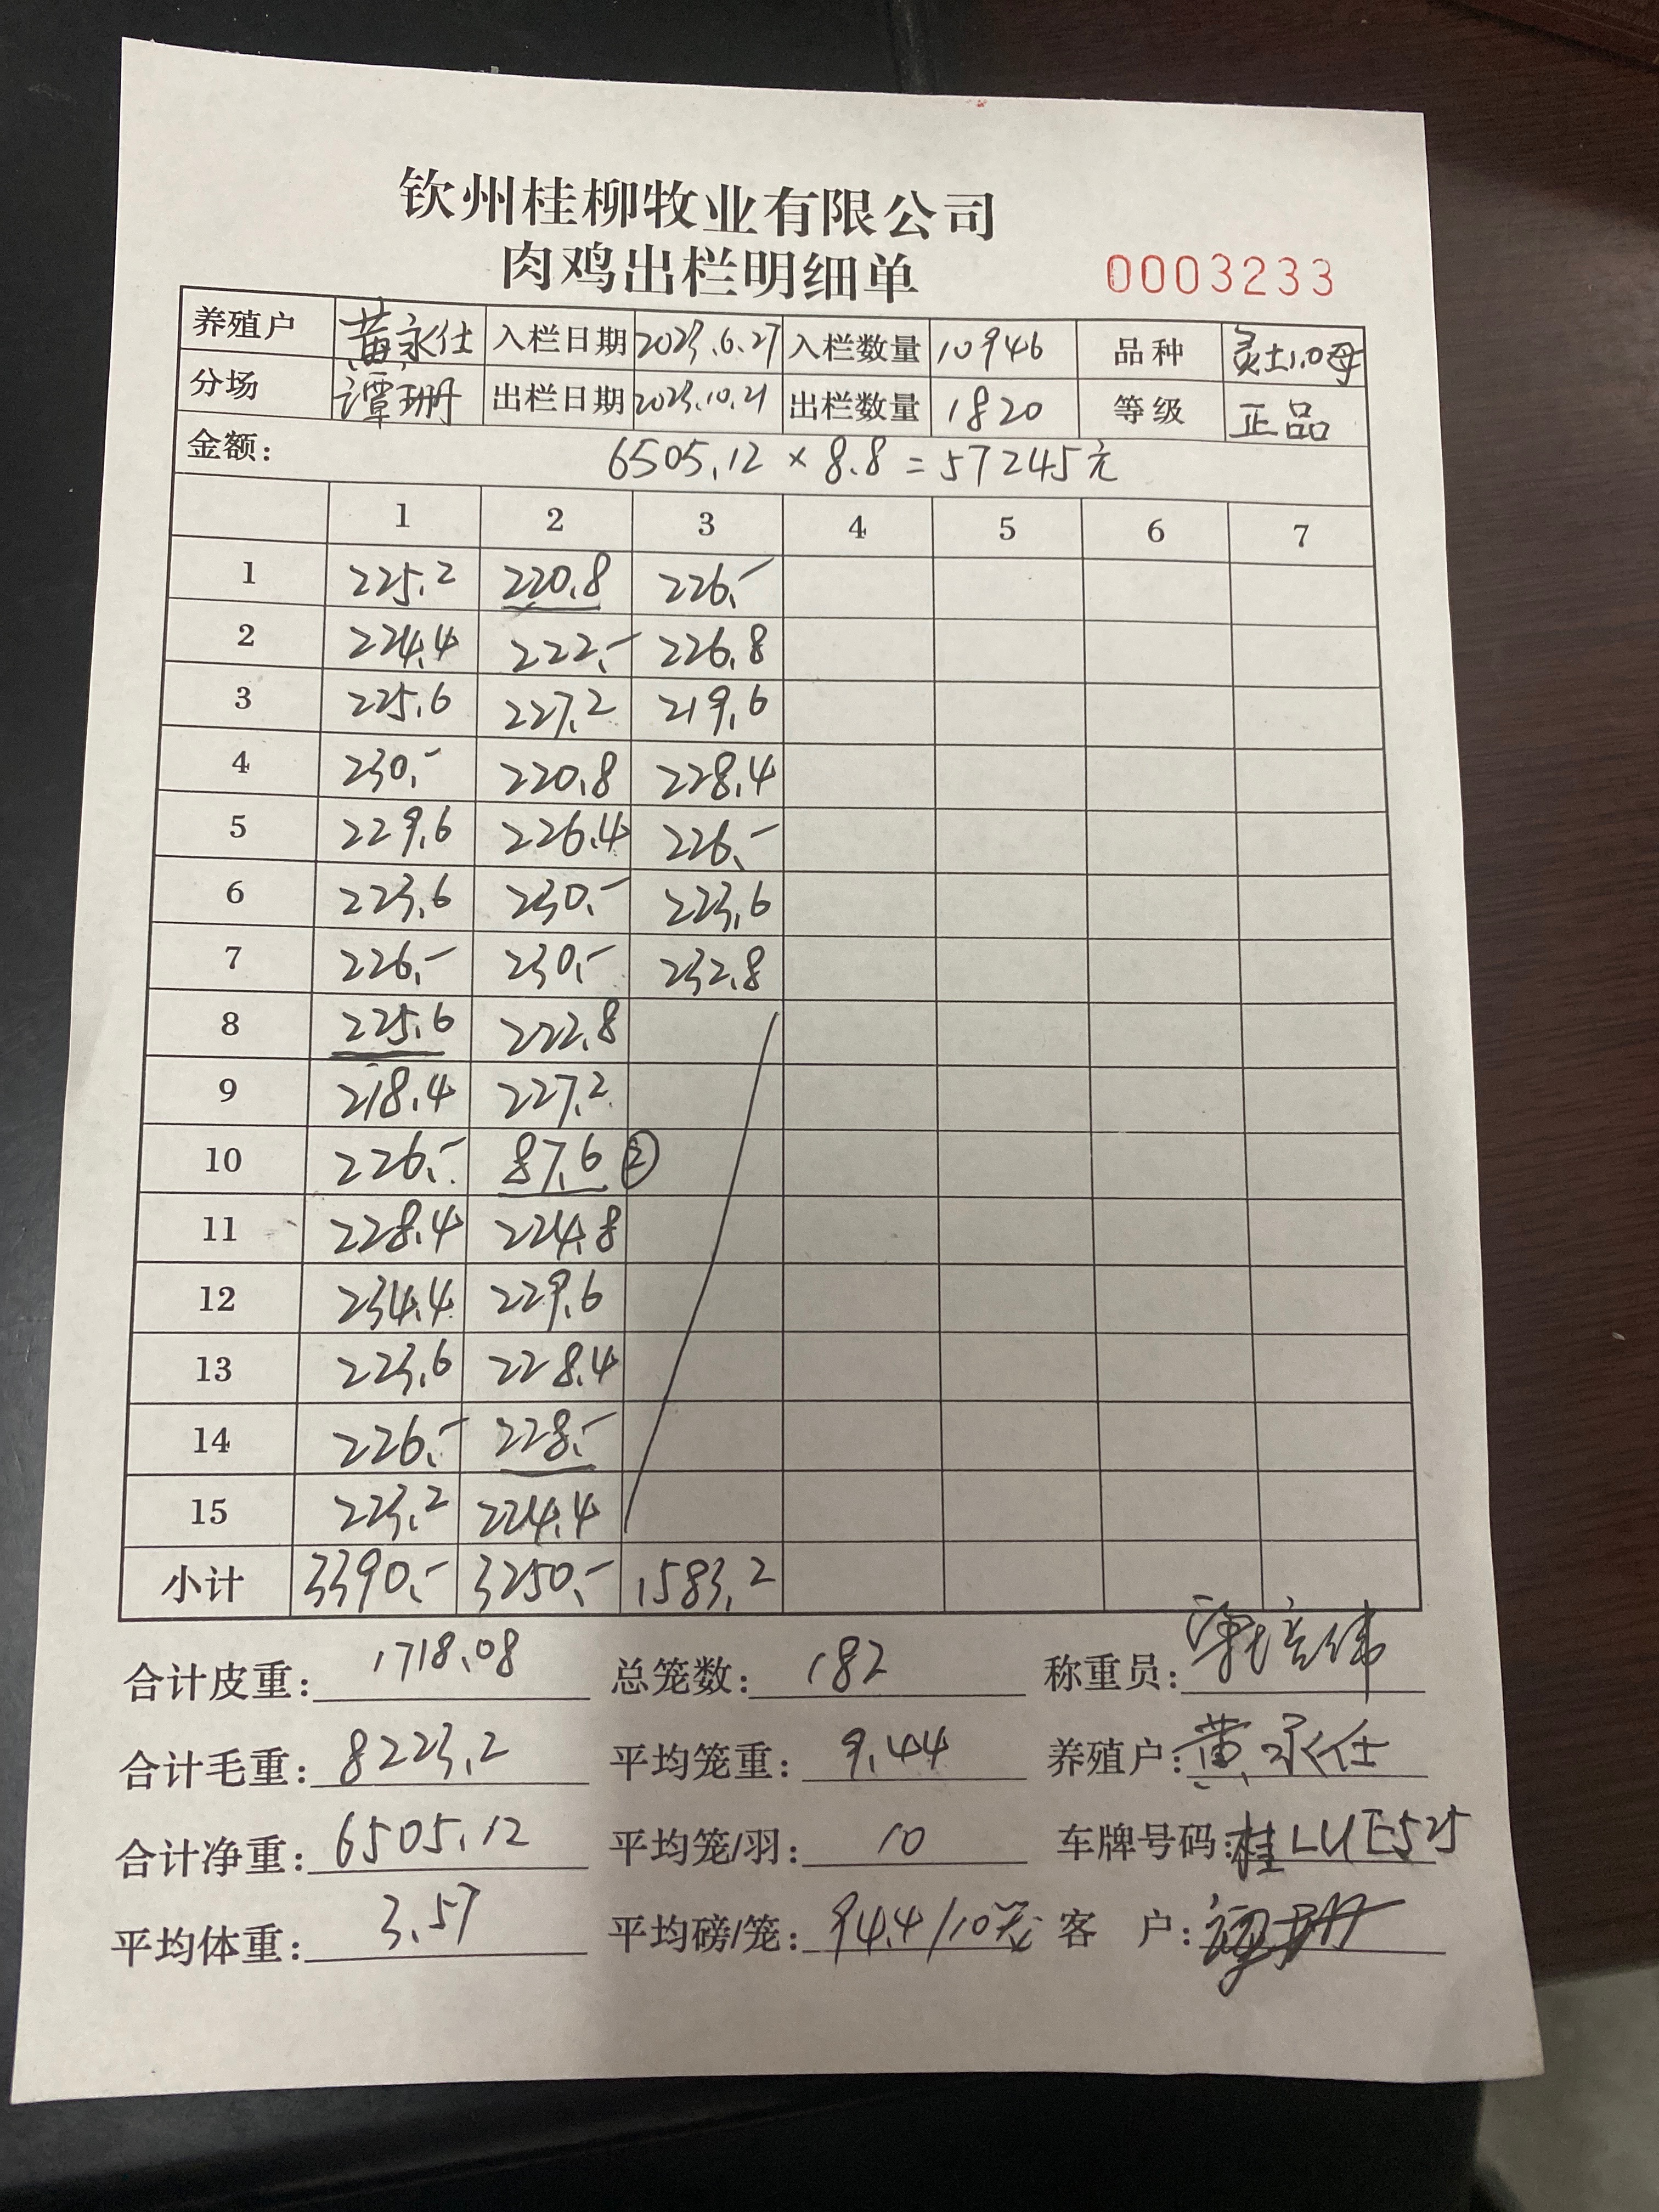 钦州桂柳牧业有限公司
肉鸡出栏明细单 0003233
养殖户 黄永仕 入栏日期 2023.6.27 入栏数量 10946 品种 灵土1.0母
分场 谭珊 出栏日期 2023.10.21 出栏数量 1820 等级 正品
金额: 6505.12 × 8.8 = 57245元
1 2 3 4 5 6 7
1 225.2 220.8 226.-
2 224.4 222.- 226.8
3 225.6 227.2 219.6
4 230.- 220.8 228.4
5 229.6 226.4 226.-
6 223.6 230.- 223.6
7 226.- 230.- 232.8
8 225.6 222.8
9 218.4 227.2
10 226.- 87.6 ②
11 228.4 224.8
12 234.4 229.6
13 223.6 228.4
14 226.- 228.-
15 223.2 224.4
小计 3390.- 3250.- 1583.2
合计皮重: 1718.08 总笼数: 182 称重员:
合计毛重: 8223.2 平均笼重: 9.44 养殖户: 黄永仕
合计净重: 6505.12 平均笼/羽: 10 车牌号码: 桂LUE525
平均体重: 3.57 平均磅/笼: 94.4/10笼 客 户: 谭珊